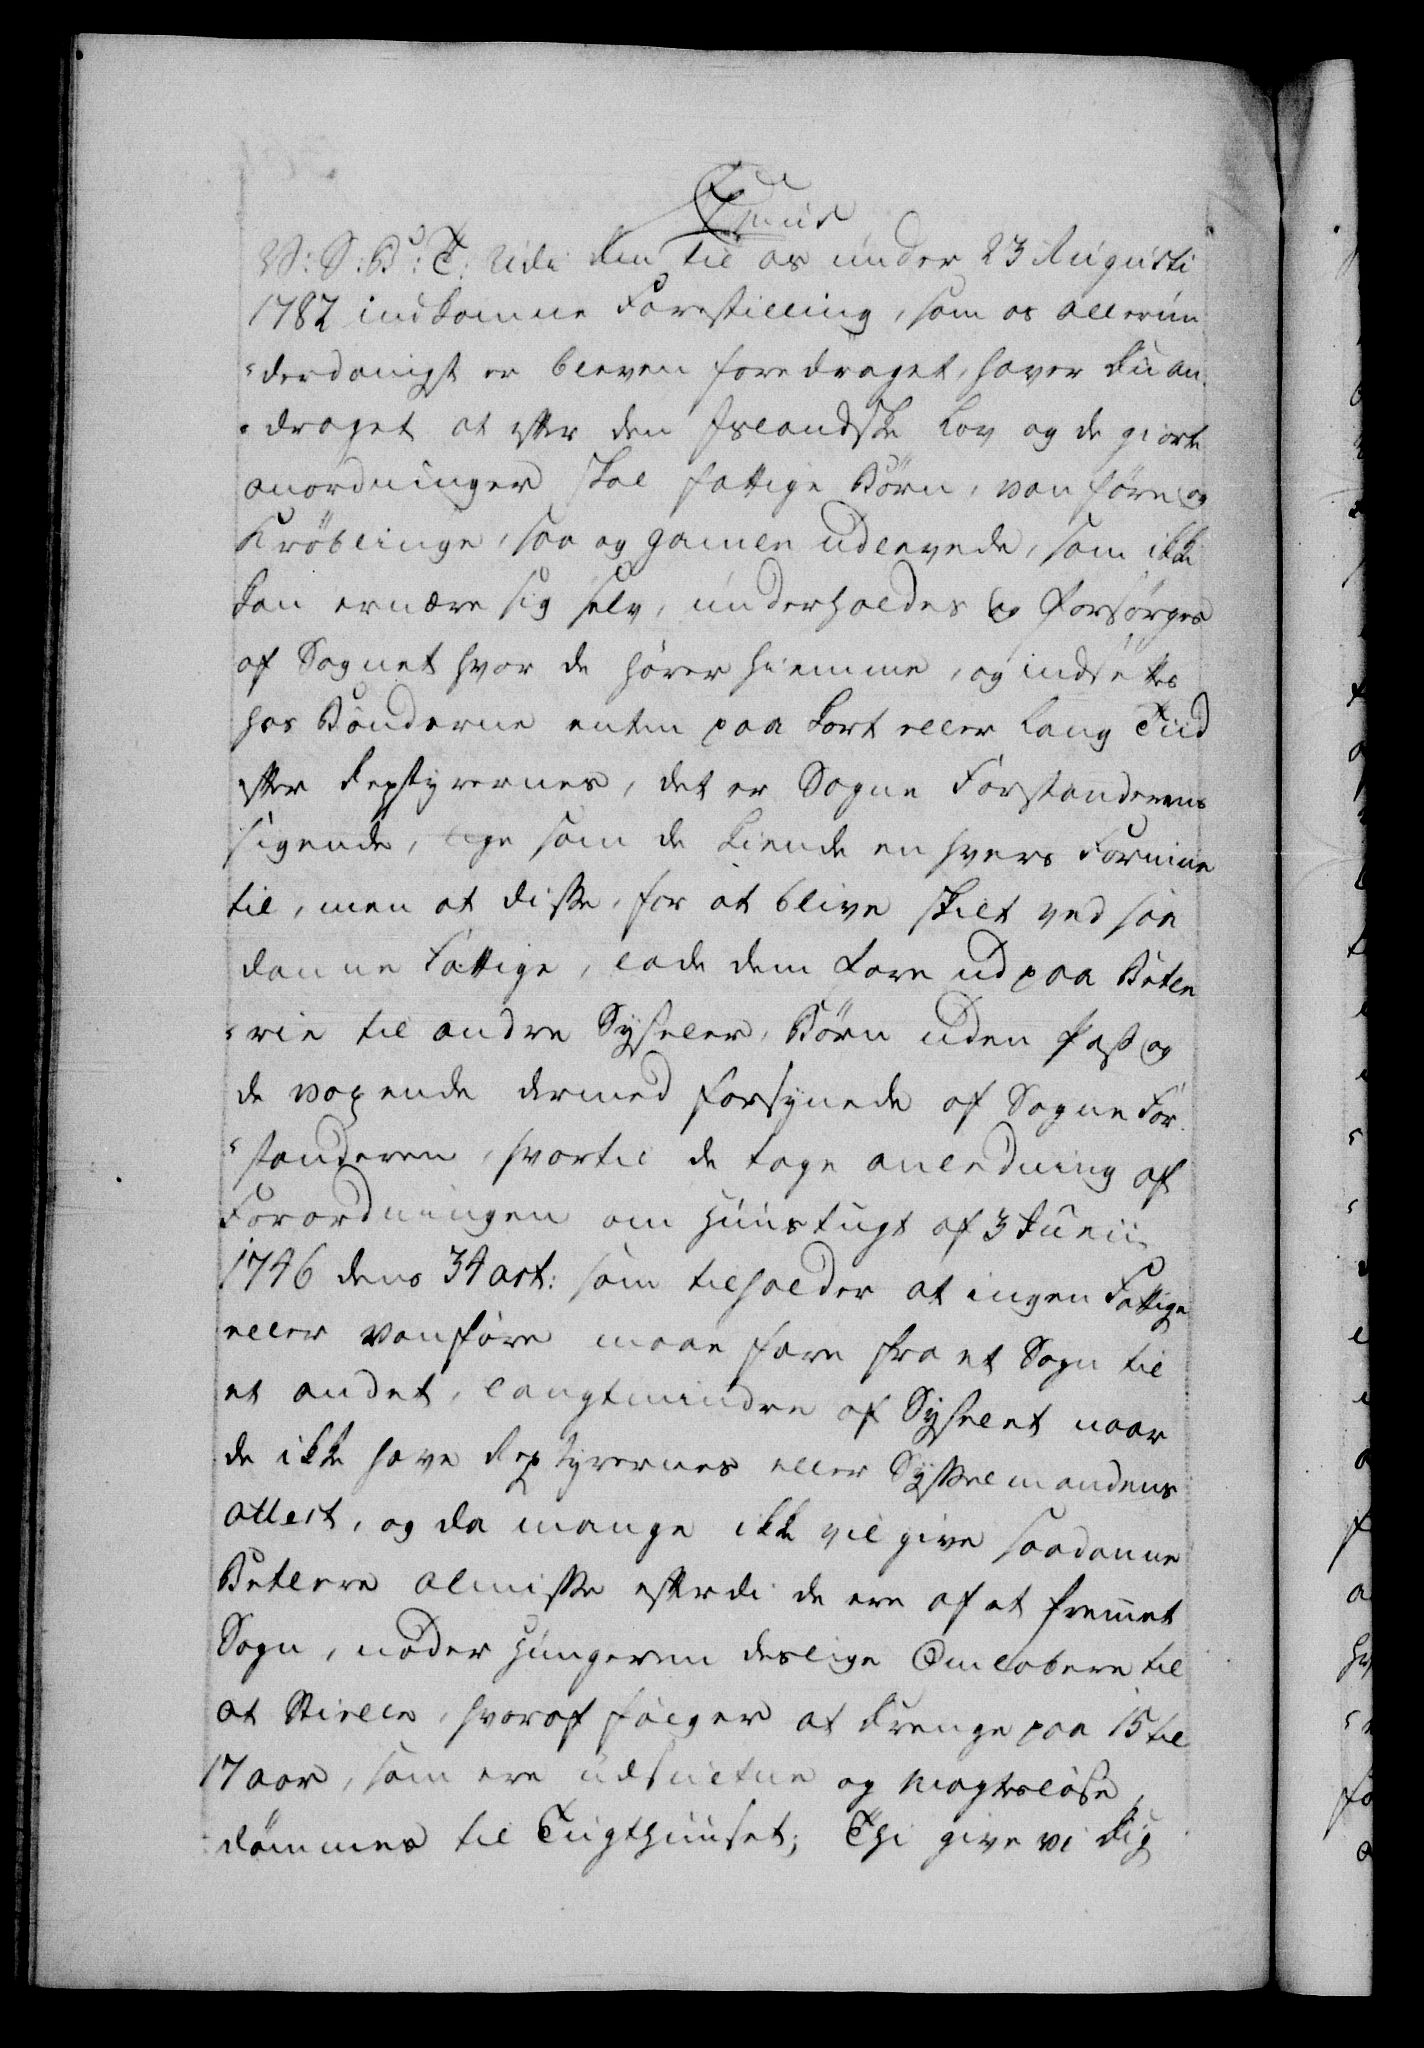 W: S: B: T: Udi den til os under 23 Augusti
1782 indkomne Forestilling, som os allerun
derdanigst er bleven foredraget, haver du an
draget at efter den Islandske Lov og de giorte
anordninger skal fattige Börn, vanföre og
Kröblinge, saa og gamle udlevede, som ikke
kan ernære sig selv, underholdes og forsörges
af Sognet hvor de hörer hiemme, og indsettes
hos Bönderne enten paa kort eller lang Tiid
efter Repstyrernes, det er Sogne Forstandernes
sigende, lige som de kiende en hvers Formue
til, men at disse, for at blive skilt ved saa
danne Fattige, lade dem fare ud paa Betle
rie til andre Sysseler, Börn uden Pass og
de voxende dermed forsynede af Sogne For
standeren, hvortil de tage anledning af
Forordningen om Huustugt af 3 Junii
1746 dens 34 art: som tilholder at ingen Fattige
eller vanföre maae fare fra et Sogn til
et andet, langtmindre af Sysselet naar
de ikke have Repstyrernes eller Sysselmandens
attest, og da mange ikke vil give saadanne
Betlere almisse efterdi de ere af et fremmet
Sogn, nöder Hungeren deslige Omlöbere til
at Stiele, hvoraf fölger at Drenge paa 15 til
17 aar, som ere udsultne og magteslöse,
dömmes til Tugthuuset; Thi give vi dig